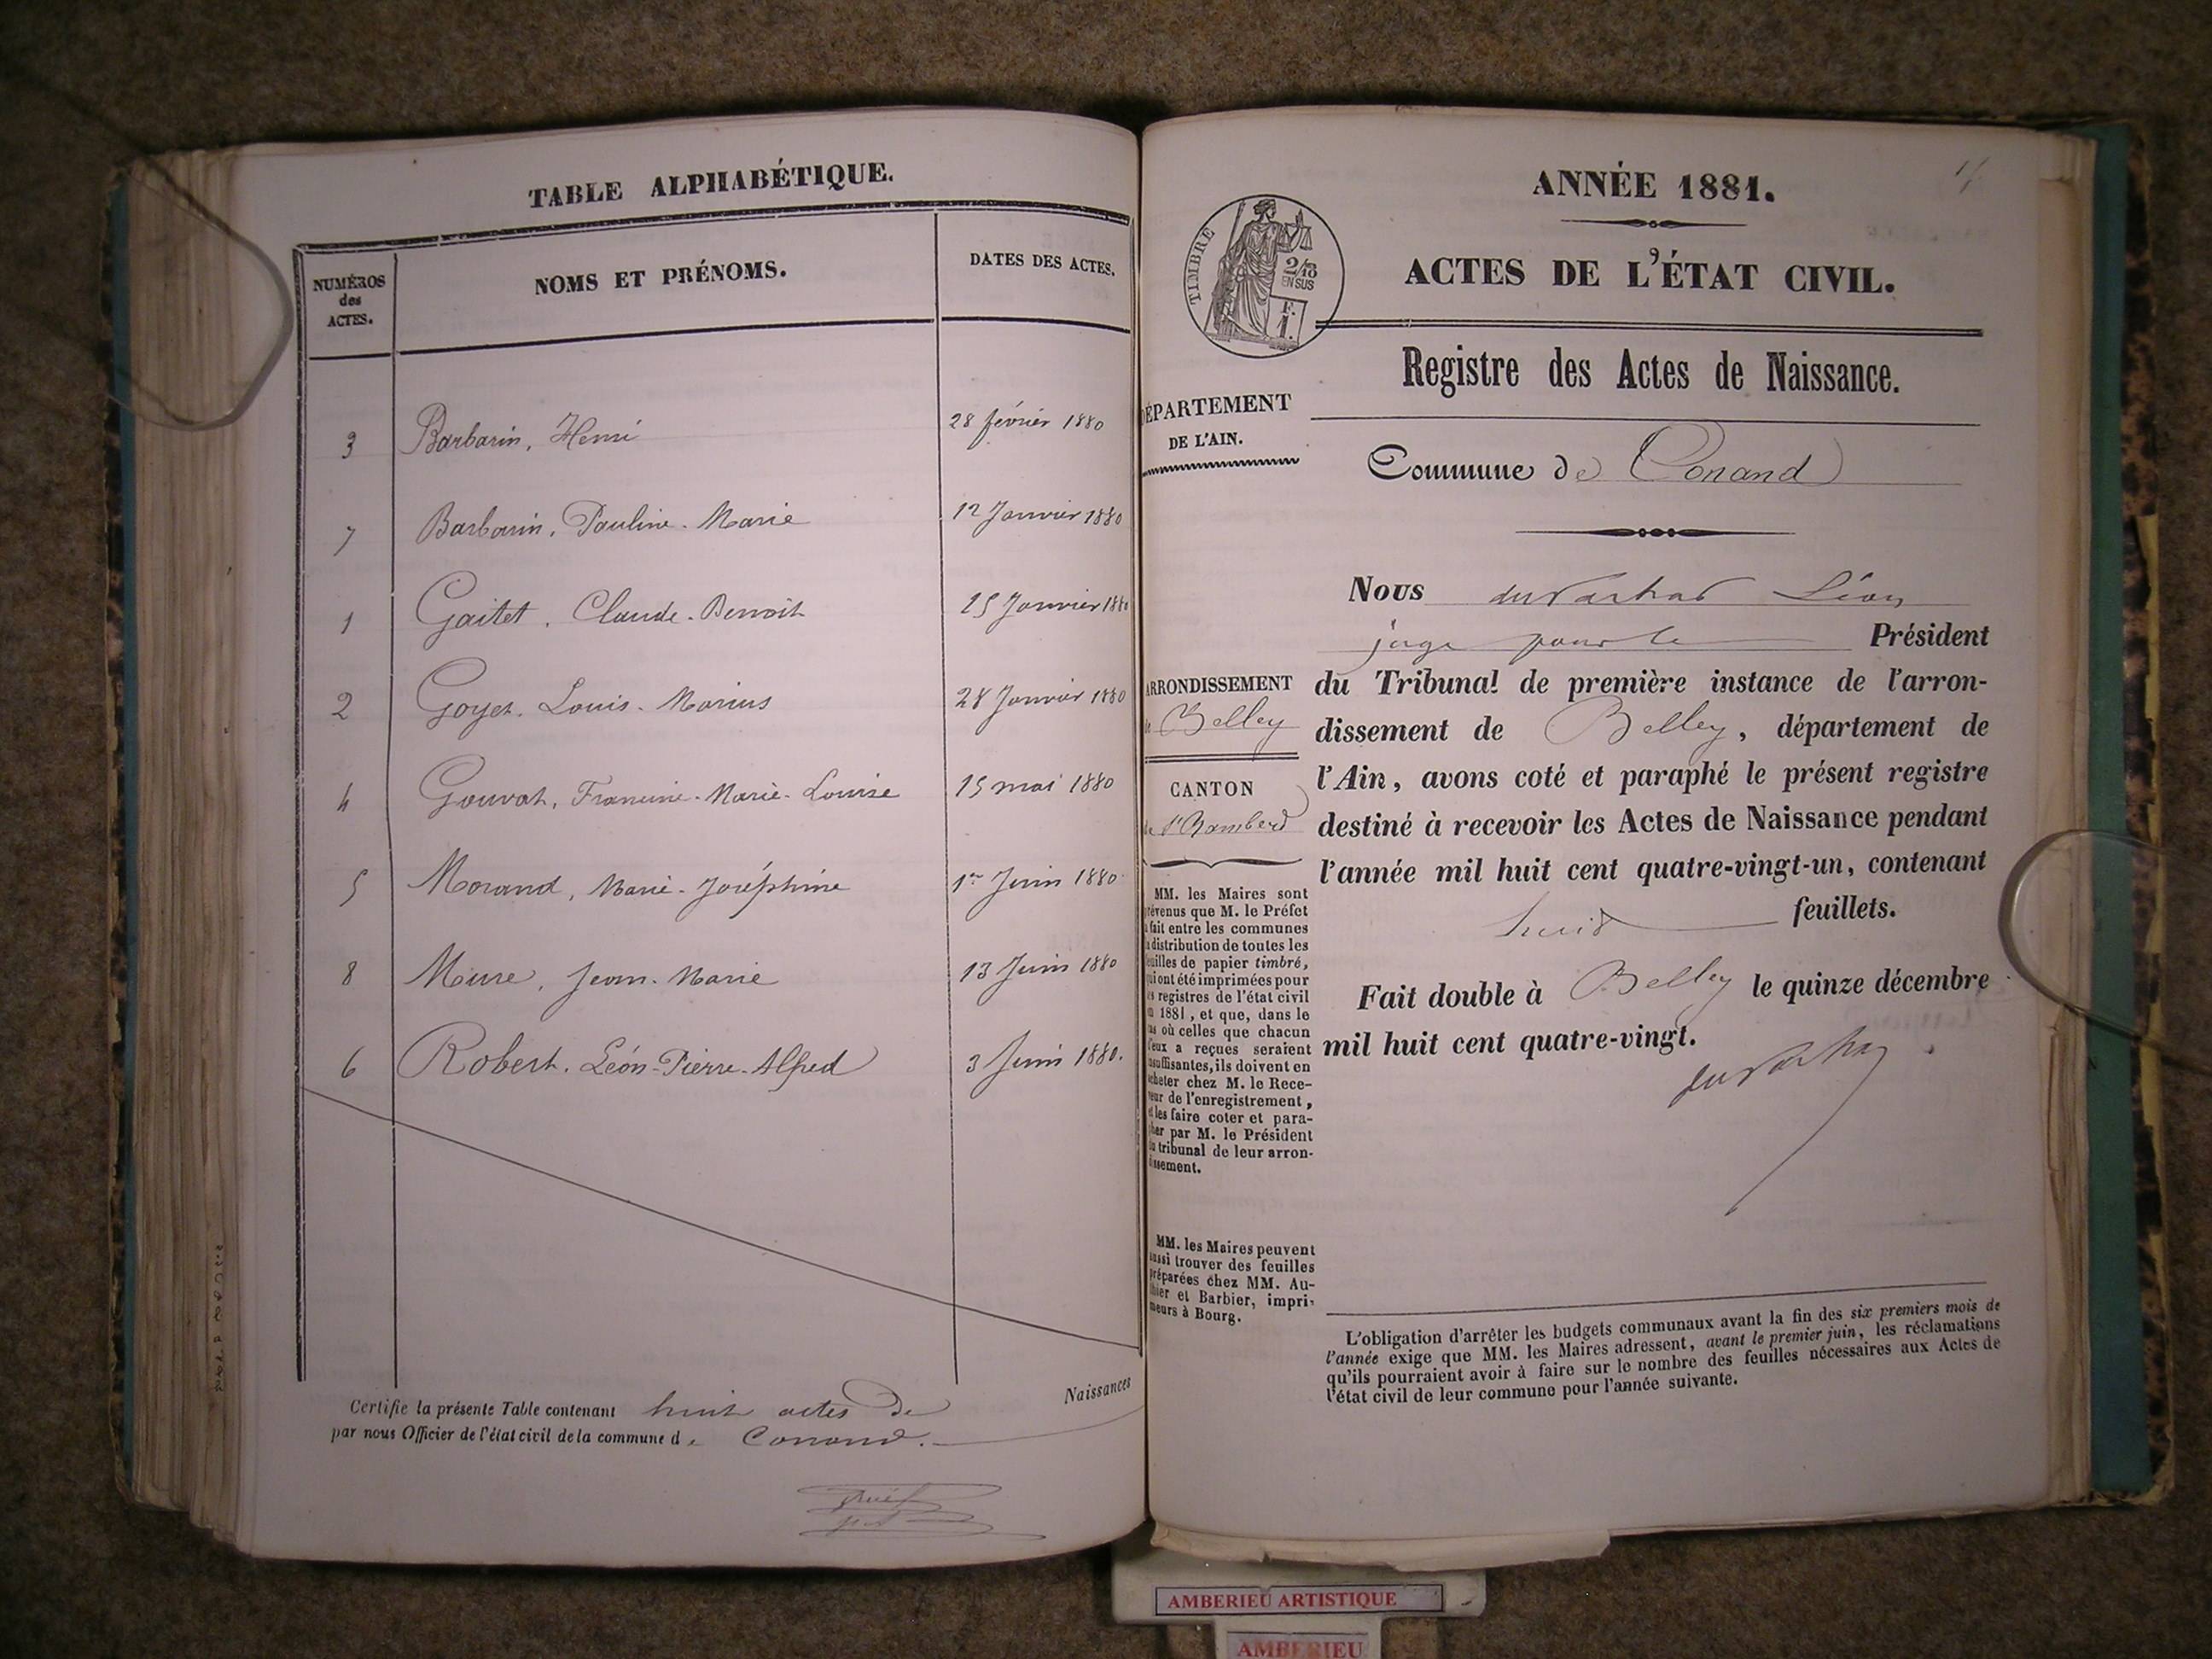 TABLE ALPHABÉTIQUE.
NUMÉROS des ACTES.
NOMS ET PRÉNOMS.
DATES DES ACTES.
3 Barbarin, Henri 28 février 1880
7 Barbarin, Pauline-Marie 12 Janvier 1880
1 Gaitet, Claude-Benoit 15 Janvier 1880
2 Goyet, Louis-Marius 28 Janvier 1880
4 Gouvat, Francine-Marie-Louise 15 mai 1880
5 Morand, Marie-Joséphine 1er Juin 1880
8 Mure, Jean-Marie 13 Juin 1880
6 Robert, Léon-Pierre-Alfred 3 Juin 1880.
Certifie la présente Table contenant huit actes de Naissances
par nous Officier de l'état civil de la commune de Conand.
ANNÉE 1881.
TIMBRE
2/10
EN SUS
F.
1.
ACTES DE L'ÉTAT CIVIL.
Registre des Actes de Naissance.
DÉPARTEMENT
DE L'AIN.
Commune de Conand
Nous Léon
juge pour le Président
ARRONDISSEMENT
de Belley
CANTON
de St Rambert
du Tribunal de première instance de l'arron-
dissement de Belley, département de
l'Ain, avons coté et paraphé le présent registre
destiné à recevoir les Actes de Naissance pendant
l'année mil huit cent quatre-vingt-un, contenant
huit feuillets.
Fait double à Belley le quinze décembre
mil huit cent quatre-vingt.
MM. les Maires sont
prévenus que M. le Préfet
a fait entre les communes
la distribution de toutes les
feuilles de papier timbré,
qui ont été imprimées pour
les registres de l'état civil
en 1881, et que, dans le
cas où celles que chacun
d'eux a reçues seraient
insuffisantes, ils doivent en
acheter chez M. le Rece-
veur de l'enregistrement,
et les faire coter et para-
pher par M. le Président
du tribunal de leur arron-
dissement.
MM. les Maires peuvent
aussi trouver des feuilles
préparées chez MM. Au-
thier et Barbier, impri-
meurs à Bourg.
L'obligation d'arrêter les budgets communaux avant la fin des six premiers mois de
l'année exige que MM. les Maires adressent, avant le premier juin, les réclamations
qu'ils pourraient avoir à faire sur le nombre des feuilles nécessaires aux Actes de
l'état civil de leur commune pour l'année suivante.
AMBERIEU ARTISTIQUE
AMBERIEU